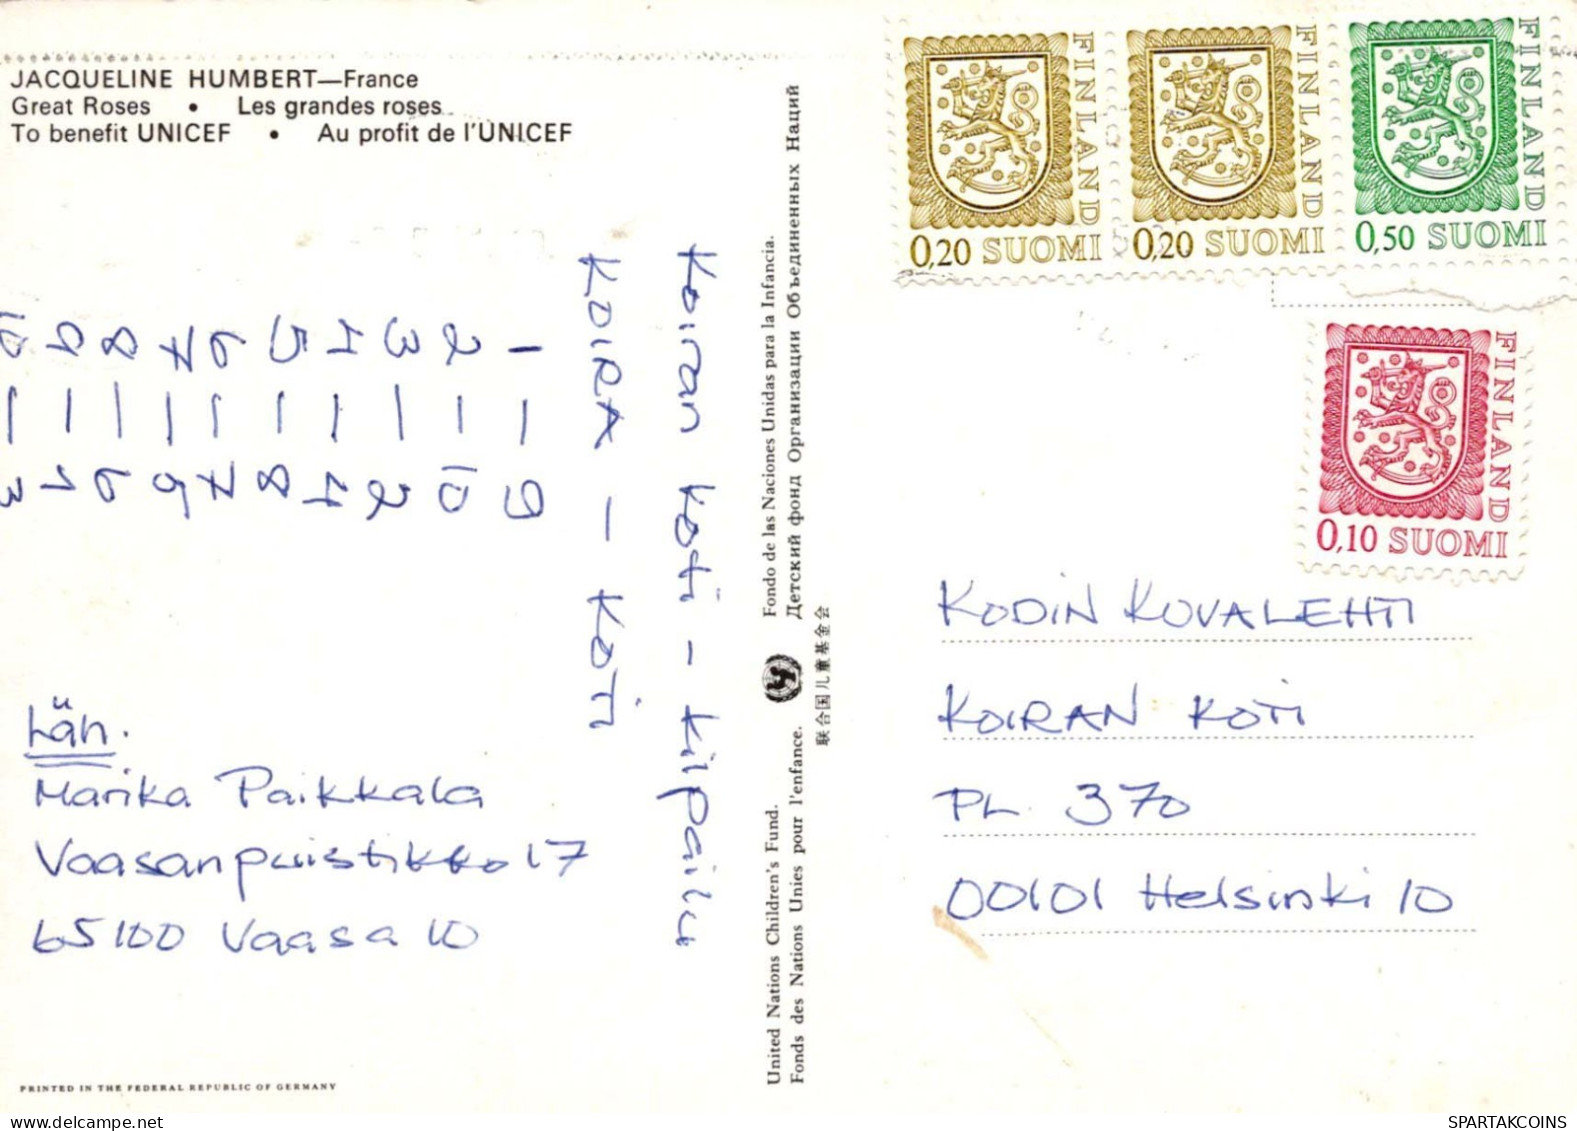 JACQUELINE HUMBERT—France
Great Roses • Les grandes roses
To benefit UNICEF • Au profit de l'UNICEF
Koiran Koti - kilpailu
KOIRA - KOTI
1 - 9
2 - 10
3 - 2
4 - 1
5 - 8
6 - 7
7 - 5
8 - 6
9 - 4
10 - 3
Län.
Marika Paikkala
Vaasanpuistikko 17
65100 Vaasa 10
PRINTED IN THE FEDERAL REPUBLIC OF GERMANY
United Nations Children's Fund. Fondo de las Naciones Unidas para la Infancia.
Fonds des Nations Unies pour l'enfance. Детский фонд Организации Объединенных Наций
联合国儿童基金会
FINLAND
0,20 SUOMI
FINLAND
0,20 SUOMI
FINLAND
0,50 SUOMI
FINLAND
0,10 SUOMI
KODIN KUVALEHTI
KOIRAN KOTI
PL. 370
00101 Helsinki 10
SPARTAKCOINS
delcampe.net